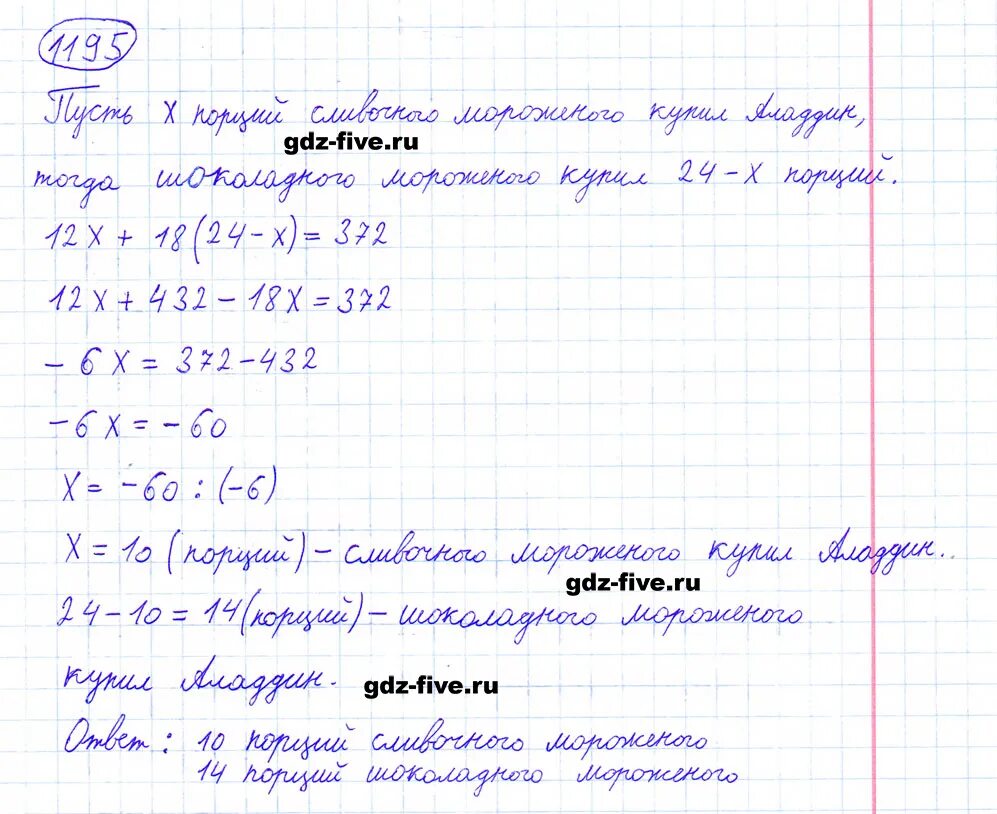 1195
Пусть x порций сливочного мороженого купил Аладдин,
gdz-five.ru
тогда шоколадного мороженого купил 24 - x порций.
12x + 18(24 - x) = 372
12x + 432 - 18x = 372
- 6x = 372 - 432
- 6x = - 60
x = -60 : (-6)
x = 10 (порций) - сливочного мороженого купил Аладдин..
gdz-five.ru
24 - 10 = 14 (порций) - шоколадного мороженого
купил Аладдин.
gdz-five.ru
Ответ: 10 порций сливочного мороженого
14 порций шоколадного мороженого